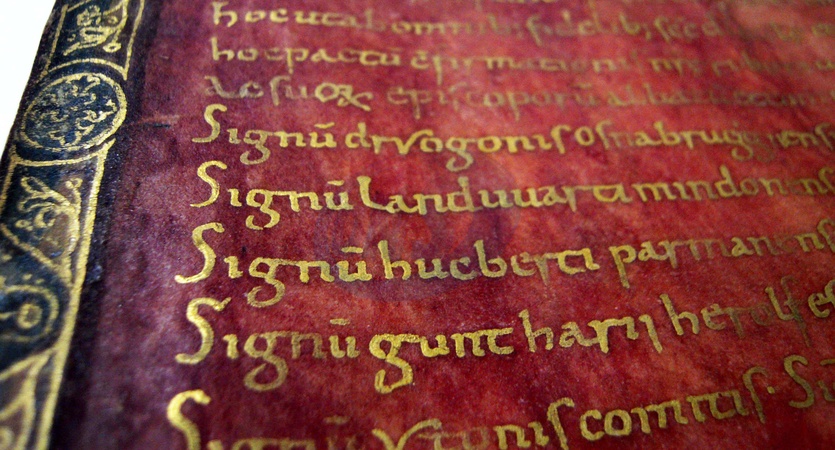 hoc ut ab omnib; fidelib;
hoc pactū c̄firmationis
ac suoꝝ ep̄iscoporū
Signū drvogonis osnabruggens
Signū landuuarti mindonens
Signū hucberti parmanens
Signū guntharii herolf
Signū Vtonis comitis · Si